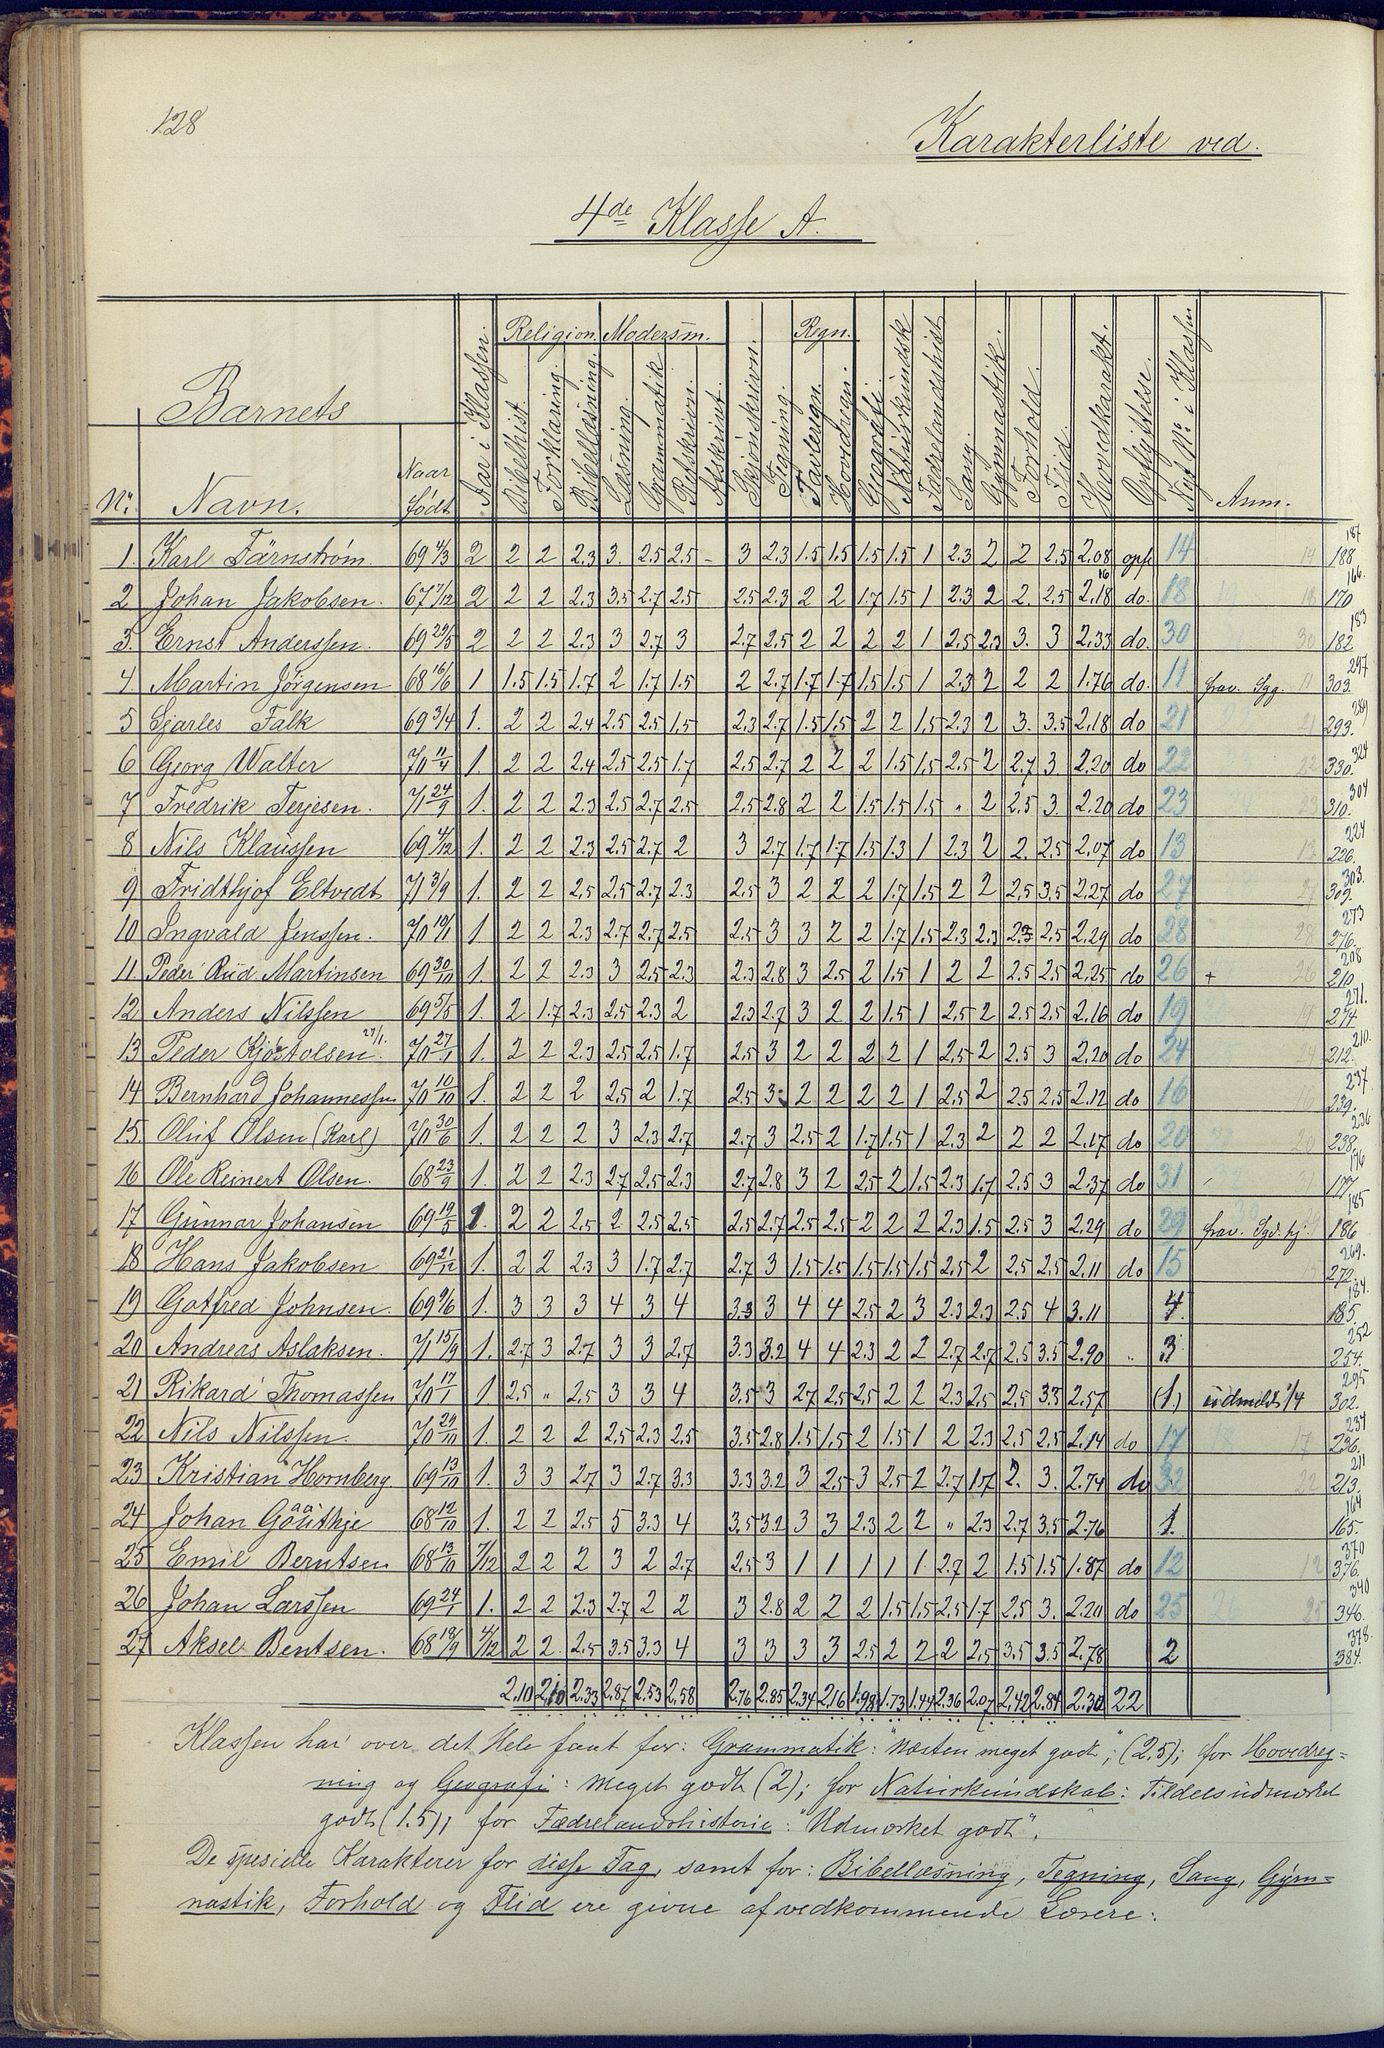 128
Karakterliste ved.
4de Klasse A.
Barnets
Religion. Modersm. Regn.
No. Navn. Naar født Aar i Klassen. Bibelhist. Forklaring. Bibellæsning. Læsning. Grammatik Retskrivn. Afskrivt. Skjönskrivn. Tegning. Tavleregn. Hovdregn. Geografi. Naturkundsk Fædrelandshist Sang. Gymnastik. Forhold. Flid. Hovedkarakt. Opflyttelse. Nyt No. i Klassen Anm.
1. Karl Färnström 69 4/3 2 2 2 2.3 3. 2.5 2.5 - 3 2.3 1.5 1.5 1.5 1.5 1 2.3 2 2 2.5 2.08 opf 14 14 187 188
2 Johan Jakobsen. 67 17/12 2 2 2 2.3 3.5 2.7 2.5 2.5 2.3 2 2 1.7 1.5 1 2.3 2 2. 2.5 2.18 16 do. 18 19 18 166 170
3. Ernst Anderssen. 69 29/5 2 2 2 2.3 3 2.7 3 2.7 2.5 2 2 2 2 1 2.5 2.3 3. 3 2.33 do. 30 30 183 182
4 Martin Jørgensen 68 16/6 1 1.5 1.5 1.7 2 1.7 1.5 2 2.7 1.7 1.7 1.5 1.5 1 2.3 2 2 2 1.76 do. 11 frav. Sgg. 11 297 303.
5 Sjarles Falk 69 3/4 1. 2 2 2.4 2.5 2.5 1.5 2.3 2.7 1.5 1.5 2 2 1.5 2.3 2 3. 3.5 2.18 do 21 21 289 293.
6 Georg Walter 70 11/4 1. 2 2 2.4 2.5 2.5 1.7 2.5 2.7 2 2 2 1.5 1.5 2.5 2 2.7 3 2.20 do 22 22 324 330.
7 Fredrik Terjesen. 71 24/9 1. 2 2 2.3 2.5 2.7 2.5 2.5 2.8 2 2 1.5 1.5 1.5 " 2 2.5 3. 2.20 do 23 23 304 310.
8 Nils Klaussen 69 4/12 1. 2 2 2.3 2.5 2.7 2 3 2.7 1.7 1.7 1.5 1.3 1 2.3 2 2. 2.5 2.07 do 13 13 224 226.
9 Fridthjof Eltvedt 71 3/9 1. 2 2 2.5 2.5 2.7 2.3 2.5 3 2 2 2 1.7 1.5 2 2 2.5 3.5 2.27 do 27 27 303. 309.
10 Ingvald Jenssen. 70 19/1 1. 2 2 2.3 2.7 2.7 2.5 2.5 3 3 2 2 1.7 1.5 2.3 2.3 2.3 2.5 2.29 do 28 28 273 276.
11 Peder Rud Martinsen 69 30/10 1. 2 2 2.3 3 2.5 2.3 2.3 2.8 3 2.5 2 1.5 1 2 2 2.5 2.5 2.25 do 26 + 26 208 210.
12 Anders Nilssen 69 5/5 1. 2 1.7 2.3 2.5 2.3 2 2.3 2.7 3 2 2 1.5 1 2.5 2 2.5 2.5 2.16 do 19 19 271. 274
13 Peder Kjøstolsen 27/1. 70 27/1 1. 2 2 2.3 2.5 2.5 1.7 2.5 3 2 2 2 2 1 2.5 2 2.5 3 2.20 do 24 24 210. 212.
14 Bernhard Johannessen 70 10/10 1. 2 2 2 2.5 2 1.7 2.5 3 2 2 2 2 1 2.5 2 2.5 2.5 2.12 do 16 16 237. 239.
15 Oluf Olsen (Karl) 70 30/6 1. 2 2 2 3 2.3 2.7 2.7 3 2.5 2 1.7 1.5 1 2.3 2 2 2 2.17 do 20 20 236 238.
16 Ole Reinert Olsen. 68 23/9 1. 2 2 2.3 2.7 2.5 2.3 2.7 2.8 3 2 2.5 2 1.5 2.3 1.7 2.5 3 2.37 do 31 176 177
17 Gunnar Johansen 69 19/5 1. 2 2 2.5 2 2.5 2.5 2.5 2.7 2.5 2.5 2 2 2 2.3 1.5 2.5 3 2.29 do 29 frav. Sgd. hj. 185 186
18 Hans Jakobsen 69 21/12 1. 2 2 2.3 3 1.7 2.7 2.7 3 1.5 1.5 1.5 1.5 1.5 2.5 2 2.5 2.5 2.11 do 15 15 269. 272.
19 Gotfred Johnsen. 69 9/6 1. 3 3 3 4 3 4 3.3 3 4 4 2.5 2 3 2.3 2.3 2.5 4 3.11 4. 184. 185.
20 Andreas Aslaksen. 71 15/9 1. 2.7 3 2.7 3 3 2.7 3.3 3.2 4 4 2.3 2 2 2.7 2.7 2.5 3.5 2.90 " 3 252 254.
21 Rikard Thomassen 70 17/1 1 2.5 " 2.5 3 3 4 3.5 3 2.7 2.5 2.5 2 2 2.3 2.5 2.5 3.3 2.57 (1.) udmeldt 1/4 295 302.
22 Nils Nilssen. 70 29/10 1. 2 2 2 2.5 2.3 2.5 3.5 2.8 1.5 1.5 2 1.5 1 2 2.3 2.5 2.5 2.14 do 17 18 17 234 236.
23 Kristian Hornberg. 69 13/10 1. 3 3 2.7 3 2.7 3.3 3.3 3.2 3 2.5 3 2.5 2 2.7 1.7 2. 3. 2.74 do 32 22 211 213.
24 Johan Göuthje 68 12/10 1. 2 2 2.5 5 3.3 4 3.5 3.2 3 3 2.3 2 2 " 2.3 2.7 3.5 2.76 1. 164 165.
25 Emil Berntsen 68 13/10 7/12 2 2 2 3 2 2.7 2.5 3 1 1 1 1 1 2.7 2 1.5 1.5 1.87 do 12 12 370 376.
26 Johan Larssen 69 24/1 1. 2 2 2.3 2.7 2 2 3 2.8 2 2 2 1.5 1.5 2.5 1.7 2.5 3. 2.20 do 25 26 25 340 346.
27 Aksel Bentsen. 68 18/9 4/12 2 2. 2.5 3.5 3.3 4 3 3 3 3 2.5 2 2 2 2.5 3.5 3.5 2.78 2 378. 384.
2.10 2.10 2.33 2.87 2.53 2.58 2.76 2.85 2.34 2.16 1.98 1.73 1.44 2.36 2.07 2.42 2.84 2.30 22
Klassen har over det Hele faat for: Grammatik: "Næsten meget godt", (2.5); for Hovedreg=
ning og Geografi: meget godt (2); for Naturkundskab: Tildels udmærket
godt (1.5); for Fædrelandshistorie: "Udmærket godt".
De spesielle Karakterer for disse Fag, samt for: Bibellæsning, Tegning, Sang, Gym=
nastik, Forhold og Flid ere givne af vedkommende Lærere.